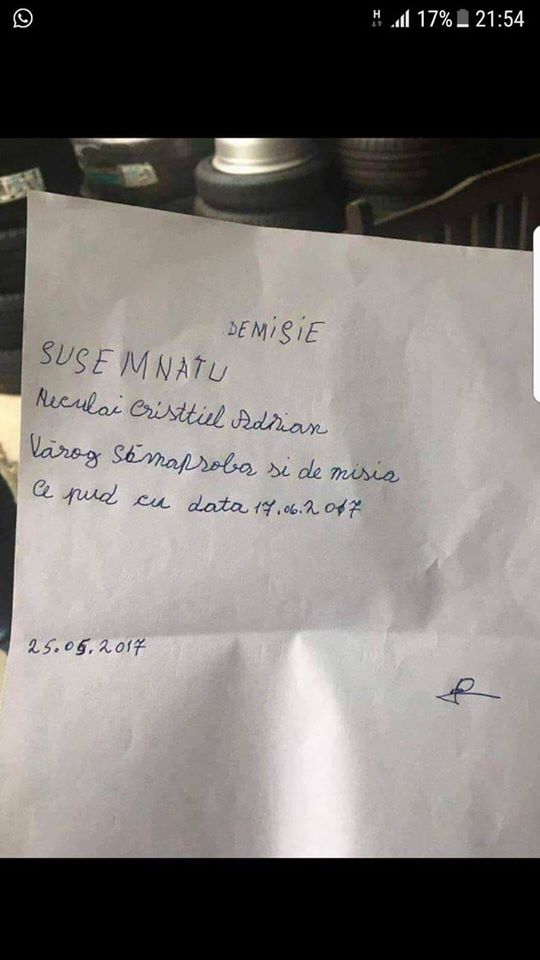 H 17% 21:54
DEMISIE
SUSEMNATU
Neculai Cristtiel Adrian
Vărog Sămaproba si de misia
Ce pud cu data 17.06.2017
25.05.2017